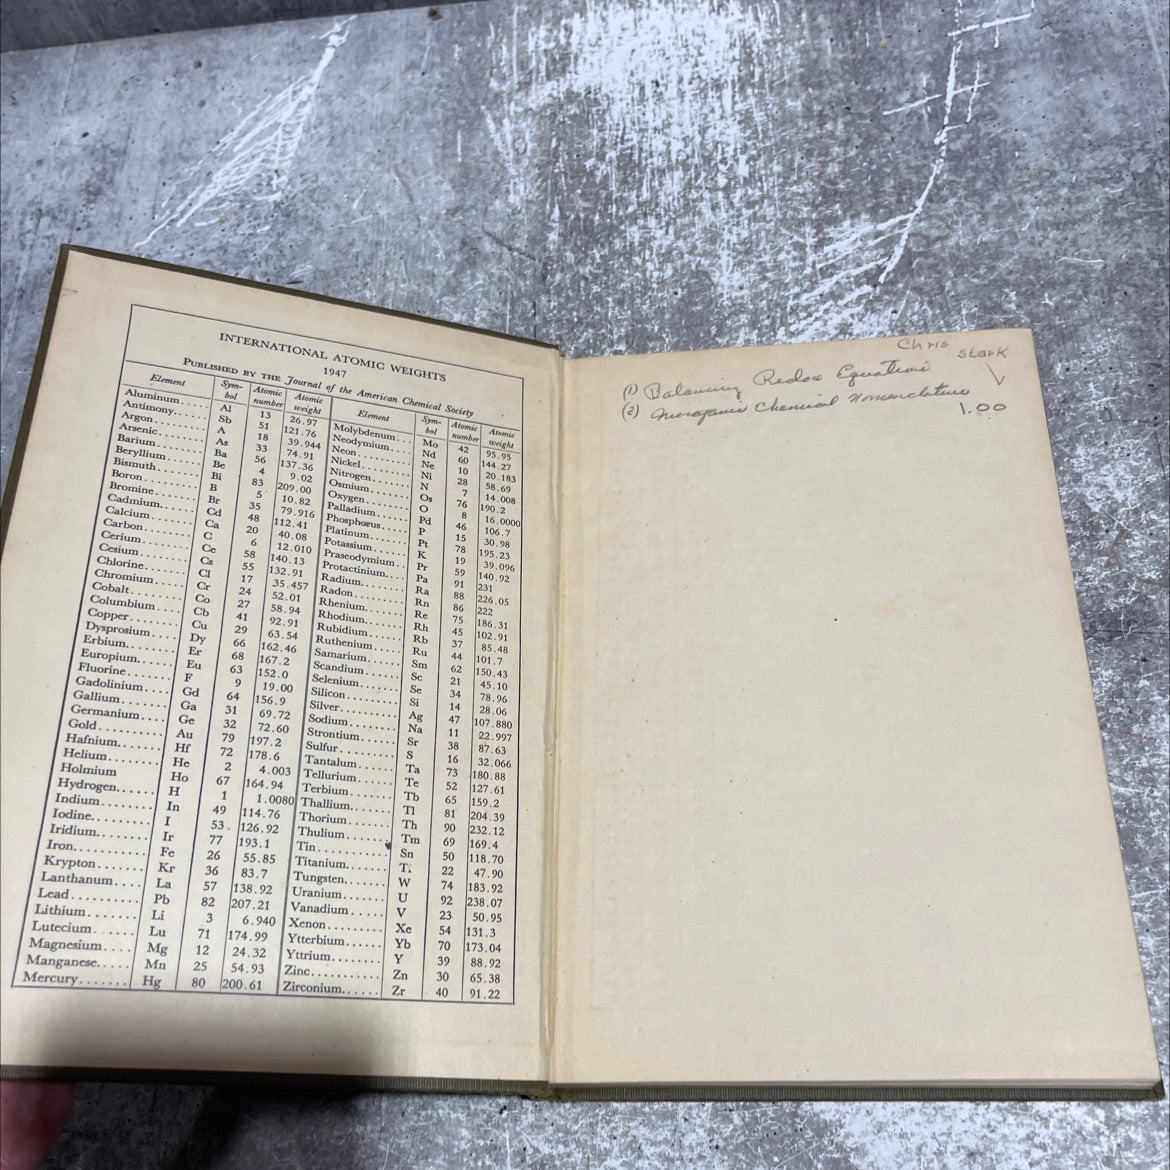 INTERNATIONAL ATOMIC WEIGHTS
1947
PUBLISHED BY THE Journal of the American Chemical Society
Element Sym-bol Atomic number Atomic weight
Aluminum..... Al 13 26.97
Antimony..... Sb 51 121.76
Argon....... A 18 39.944
Arsenic...... As 33 74.91
Barium...... Ba 56 137.36
Beryllium.... Be 4 9.02
Bismuth..... Bi 83 209.00
Boron....... B 5 10.82
Bromine..... Br 35 79.916
Cadmium.... Cd 48 112.41
Calcium..... Ca 20 40.08
Carbon...... C 6 12.010
Cerium...... Ce 58 140.13
Cesium...... Cs 55 132.91
Chlorine..... Cl 17 35.457
Chromium.... Cr 24 52.01
Cobalt...... Co 27 58.94
Columbium... Cb 41 92.91
Copper...... Cu 29 63.54
Dysprosium... Dy 66 162.46
Erbium...... Er 68 167.2
Europium.... Eu 63 152.0
Fluorine..... F 9 19.00
Gadolinium... Gd 64 156.9
Gallium..... Ga 31 69.72
Germanium... Ge 32 72.60
Gold........ Au 79 197.2
Hafnium..... Hf 72 178.6
Helium...... He 2 4.003
Holmium Ho 67 164.94
Hydrogen.... H 1 1.0080
Indium...... In 49 114.76
Iodine....... I 53. 126.92
Iridium...... Ir 77 193.1
Iron........ Fe 26 55.85
Krypton..... Kr 36 83.7
Lanthanum.... La 57 138.92
Lead........ Pb 82 207.21
Lithium...... Li 3 6.940
Lutecium.... Lu 71 174.99
Magnesium.... Mg 12 24.32
Manganese.... Mn 25 54.93
Mercury....... Hg 80 200.61
Element Sym-bol Atomic number Atomic weight
Molybdenum... Mo 42 95.95
Neodymium... Nd 60 144.27
Neon....... Ne 10 20.183
Nickel....... Ni 28 58.69
Nitrogen..... N 7 14.008
Osmium..... Os 76 190.2
Oxygen..... O 8 16.0000
Palladium.... Pd 46 106.7
Phosphorus... P 15 30.98
Platinum.... Pt 78 195.23
Potassium.... K 19 39.096
Praseodymium.. Pr 59 140.92
Protactinium... Pa 91 231
Radium...... Ra 88 226.05
Radon....... Rn 86 222
Rhenium..... Re 75 186.31
Rhodium..... Rh 45 102.91
Rubidium.... Rb 37 85.48
Ruthenium.... Ru 44 101.7
Samarium.... Sm 62 150.43
Scandium.... Sc 21 45.10
Selenium..... Se 34 78.96
Silicon....... Si 14 28.06
Silver....... Ag 47 107.880
Sodium...... Na 11 22.997
Strontium.... Sr 38 87.63
Sulfur....... S 16 32.066
Tantalum.... Ta 73 180.88
Tellurium..... Te 52 127.61
Terbium..... Tb 65 159.2
Thallium..... Tl 81 204.39
Thorium..... Th 90 232.12
Thulium..... Tm 69 169.4
Tin......... Sn 50 118.70
Titanium..... Ti 22 47.90
Tungsten..... W 74 183.92
Uranium..... U 92 238.07
Vanadium.... V 23 50.95
Xenon....... Xe 54 131.3
Ytterbium..... Yb 70 173.04
Yttrium...... Y 39 88.92
Zinc......... Zn 30 65.38
Zirconium..... Zr 40 91.22
Chris
Stark
(1) Balancing Redox Equations
(2) Inorganic Chemical Nomenclature
1.00